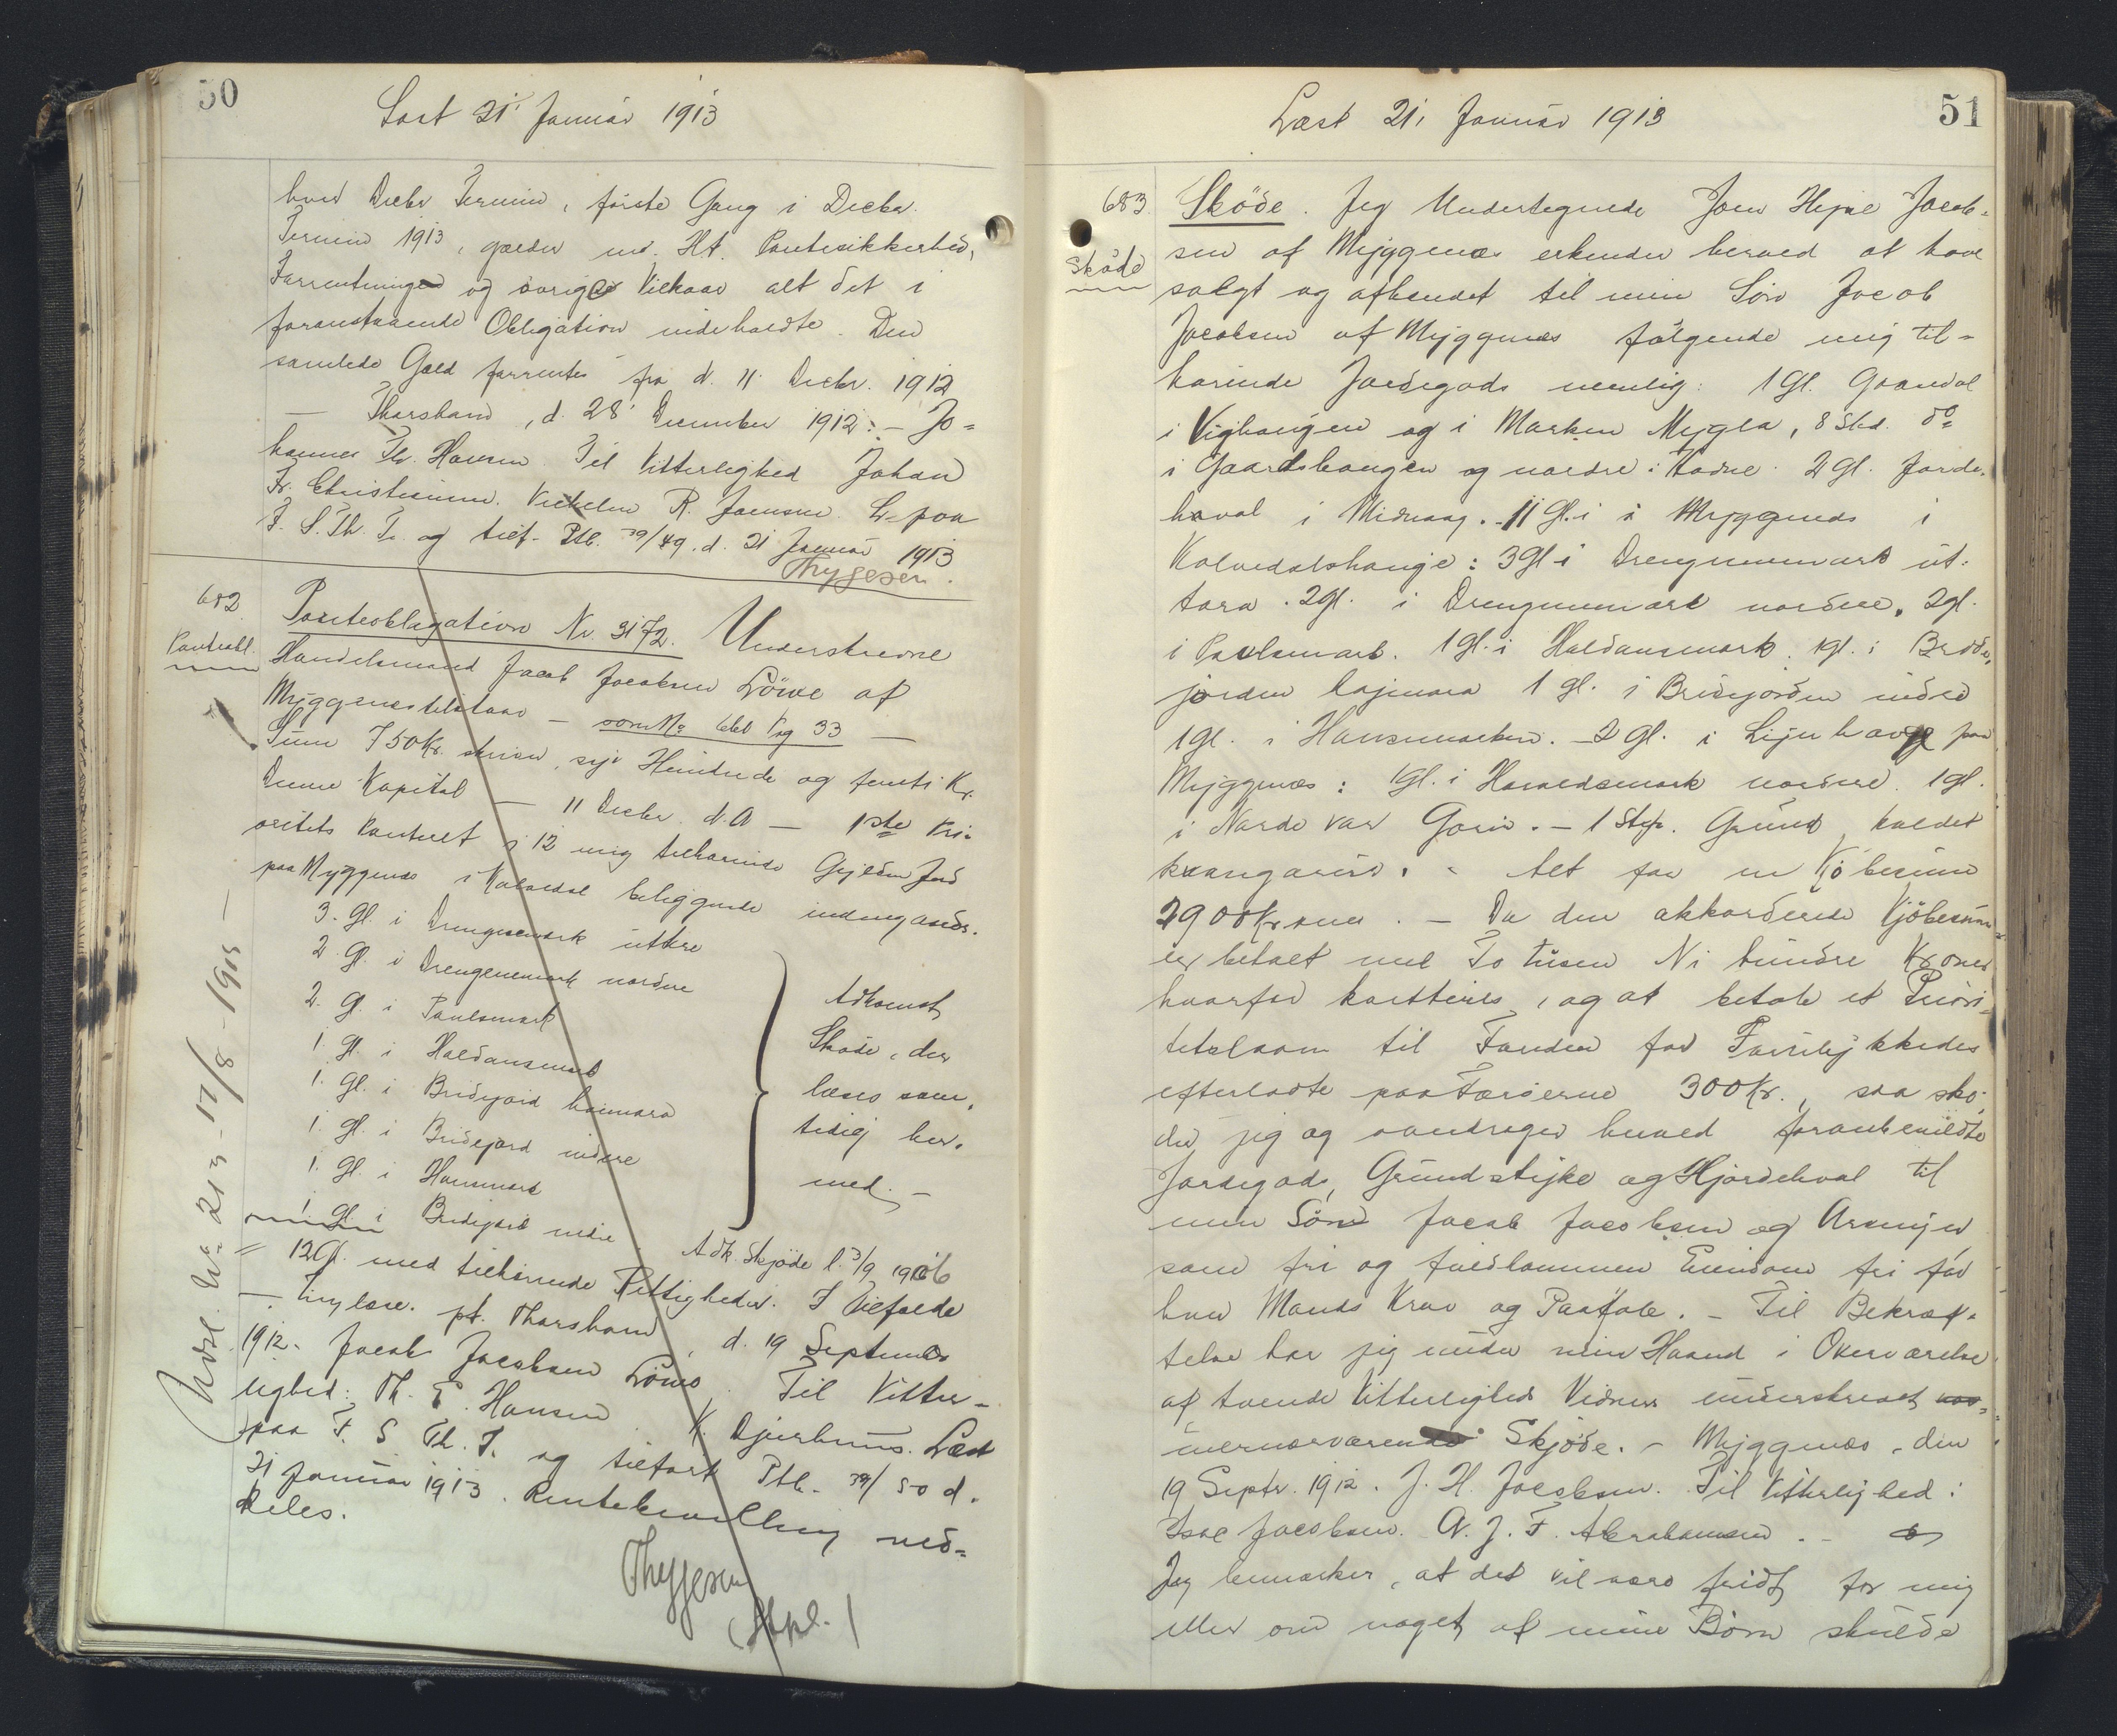 50
Læst 21' Januar 1913
hver Decbr Termin, første Gang i Decbr.
Termin 1913, gælder m. H. t. Pantesikkerhed,
Forrentningen og øvrige Vilkaar alt det i
foranstaaende Obligation indeholdte. Den
samlede Gæld forrentes fra d. 11. Decbr. 1912
— Thorshavn, d. 28' December 1912. — Jo=
hannes Th. Hansen. Til Vitterlighed Johan
Fr. Christiansen. R. Joensen. L. paa
F. S. Th. T. og tilf. Ptb. 39/49. d. 21 Januar 1913
Thygesen.
682
Panteobl.
Panteobligation Nr. 3172. Understrevne
Handelsmand Jacob Jacobsen Löwe af
Myggenæs tilstaar — som No 666 Pag 33 —
Sum 750 Kr. skriver syv Hundrede og femti Kr.
Denne Kapital — 11 Decbr. d. A — 1ste Pri=
oritets Panteret i 12 mig tilhørende Gylden Jord
paa Myggenæs i Kalvedal beliggende indmgards.
3. Gl. i Drengenemark uttere
2. Gl. i Drengenemark nordre
2. Gl. i Paulsmark
1. Gl. i Haldansmark
1. Gl. i Bridejord heimara
1. Gl. i Bridejord indre
1. Gl. i Hansmark
1 Gl. i Bridejord nedre
Adkomst
Skøde, der
læses sam,
tidig her,
med. —
Adk. Skjøde l. 3/9 1906
= 12 Gl. med tilhørende Rettigheder. I Tilfælde
— Tinglæse. pt. Thorshavn, d. 19 September
1912. Jacob Jacobsen Löwe. Til Vitter=
lighed: Th. E. Hansen. K. Djurhuus. Læst
paa F. S Th. T. og tilført Ptb. 39/50 d.
21 Januar 1913. Rentebevilling med=
deles.
Thygesen
(Stpl.)
Udsl. No 213 - 17/8 - 1915 —
51
Læst 21' Januar 1913
683.
Skøde
Skøde. Jeg Undertegnede Joen Hejne Jacob=
sen af Myggenæs erkender herved at have
solgt og afhændet til min Søn Jacob
Jacobsen af Myggenæs følgende mig til=
hørende Jordegods nemlig: 1 Gl. Gaandal
i Vighaugen og i Marken Mygla, 8 Skd. do
i Gaardshaugen og nordre i . 2 Gl. Jorde,
hval i Midvaag. 11 Gl. i Myggenæs i
Kalvedalshauge: 3 Gl i Drengenemark ut.
tara. 2 gl. i Drengenemark nordre. 2 gl.
i Paulsmark. 1 Gl. i Haldansmark. 1 gl. i Bride,
jorden hajmara 1 gl. i Bridejorden indre
1 gl. i Hansmarken. — 2 gl. i Lijnhauge paa
Myggenæs: 1 gl. i Haraldsmark nordre. 1 gl.
i Nordevar Gorin. — 1 Stk. Grund kaldet
. - Alt for en Købesum
2900 Kroner. — Da den akkorderede Kjöbesum
er betalt med To tusen Ni hundre Kroner
hvorfor kvitteres, og at betale et Priori=
tetslaan til Fonden for Forulykkedes
efterladte paa Færøerne 300 Kr., saa skö=
der jeg og overdrager herved foranbemeldte
Jordegods, Grundstykke og Hjordehval til
min Søn Jacob Jacobsen og Arvinger
som fri og frelskommen Eiendom fri for
hver Mands Krav og Paatale. — Til Bekræf=
telse har jeg under min Haand i Overværelse
af tvende Vitterligheds Vidner underskrevet
nærværende Skjøde. — Myggenæs, den
19 Septr. 1912. J. H. Jacobsen. Til Vitterlighed:
Isac Jacobsen. A. J. F. Abrahamsen. —
Jeg bemærker, at det vil være fridt for mig
eller om noget af mine Børn skulde